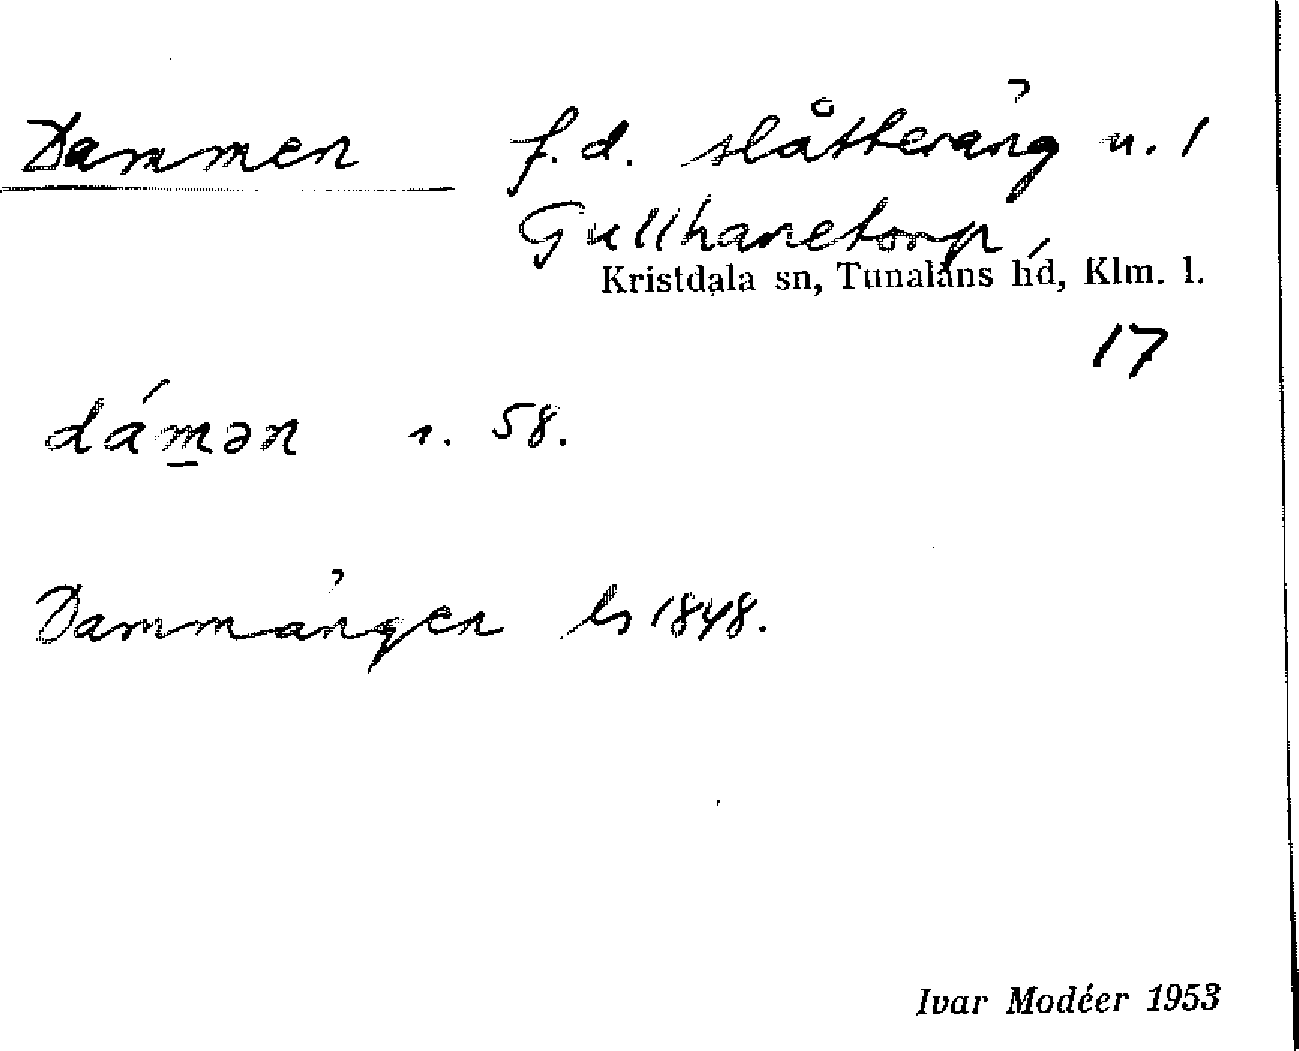 Dammen f.d. slåtteräng u. 1
Gullhanetorp,
Kristdala sn, Tunaläns hd, Klm. l.
17
dám̲ən s. 58.
Dammängen ls 1848.
Ivar Modéer 1953